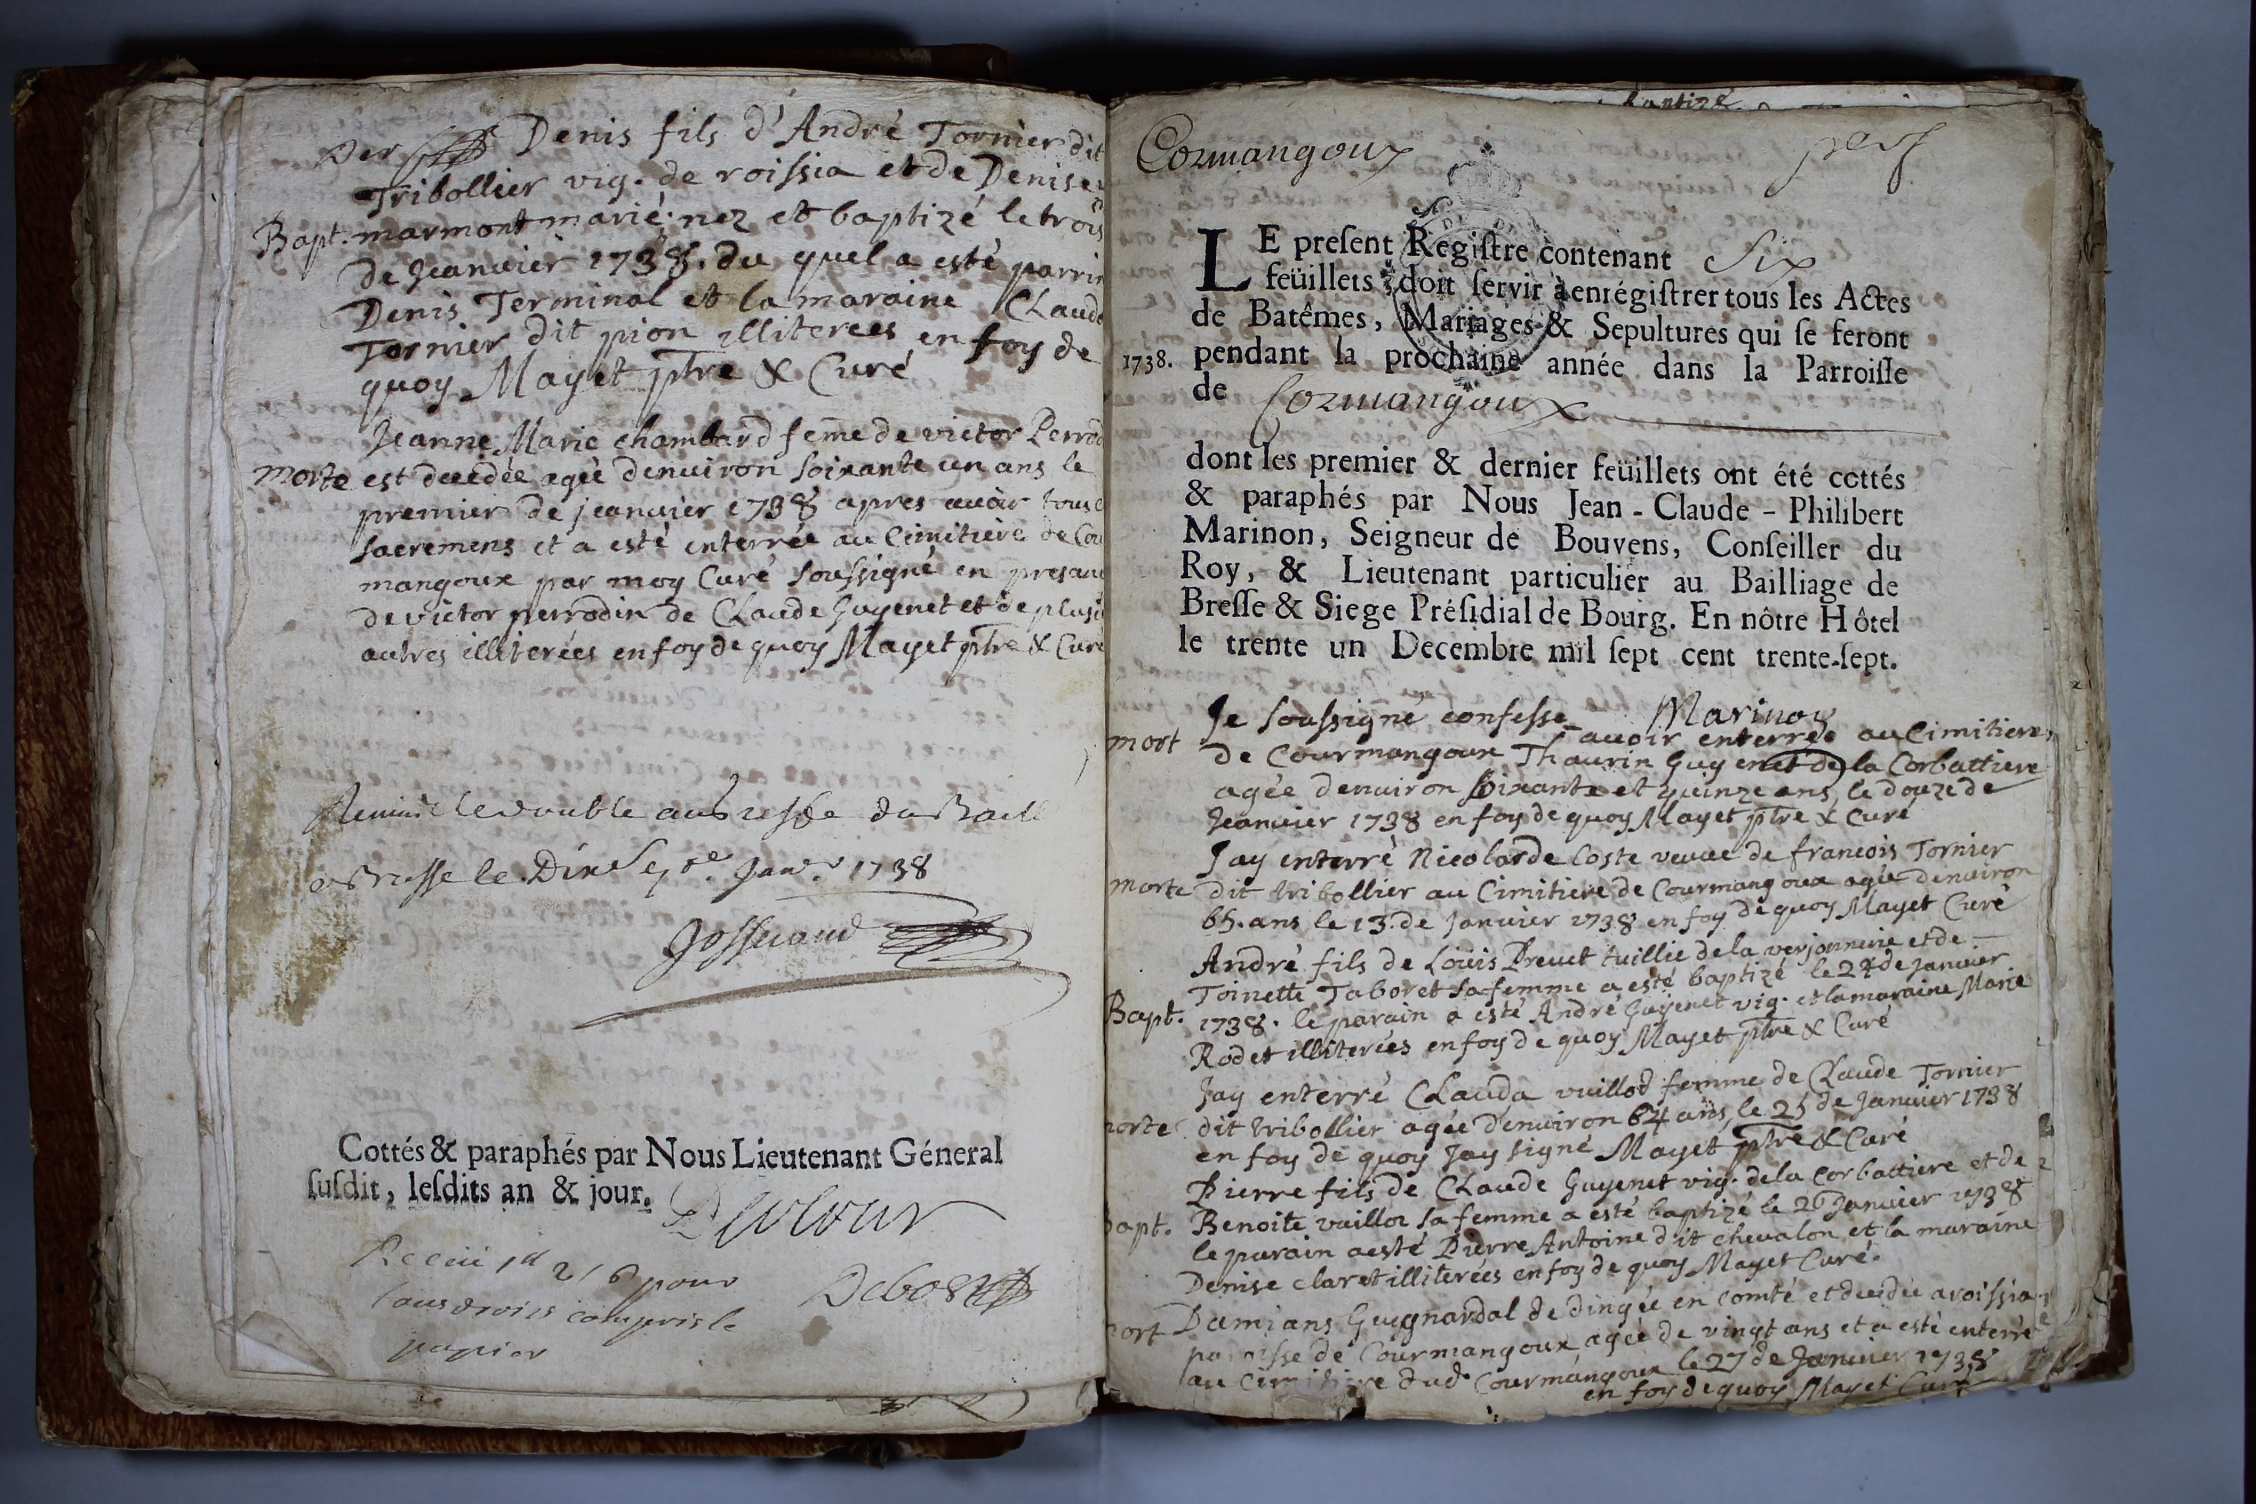 Der Denis fils d'André Tornier dit
Tribollier vig. de roissia et de Denise
Bapt. marmont marié; nez et baptizé le trois
de Jeanvier 1738. du quel a esté parrin
Denis Terminal et la maraine Claude
Tornier dit pion illiterees en foy de
quoy Mayet ptre & Curé
Jeanne Marie chambard feme de victor Perrod
morte est decedée agée denuiron soixante un ans le
premier de jeanvier 1738 apres auoir tous
sacremens et a esté enterrée au Cimitiere de Cou
mangoux par moy Curé soussigné en presan
de victor perrodin de Claude Guyenet et de plusi
autres illiterées en foy de quoy Mayet ptre & Curé
le double au Baill
le Dix sept Janv. 1738
Josserand
Cottés & paraphés par Nous Lieutenant Géneral
susdit, lesdits an & jour.
Receu 216 pour
tous droits compris le
papier
Cormangoux
1738.
LE present Registre contenant Six
feüillets doit servir à enrégistrer tous les Actes
de Batêmes, Mariages & Sepultures qui se feront
pendant la prochaine année dans la Parroisse
de Cormangoux
dont les premier & dernier feüillets ont été cottés
& paraphés par Nous Jean-Claude-Philibert
Marinon, Seigneur de Bouvens, Conseiller du
Roy, & Lieutenant particulier au Bailliage de
Bresse & Siege Présidial de Bourg. En nôtre Hôtel
le trente un Decembre mil sept cent trente-sept.
Marinon
mort Je soussigné confesse auoir enterrée au Cimitiere
de Courmangoux Thaurin Guyenet de la Corbattiere
agée denuiron soixante et quinze ans le douze de
Jeanvier 1738 en foy de quoy Mayet ptre & Curé
Jay enterré Nicolarde Coste veuve de francois Tornier
morte dit tribollier au Cimitiere de Courmangoux agée denuiron
65. ans le 13. de Janvier 1738 en foy de quoy Mayet Curé
André fils de Loüis Preuet tuillie de la verjonniere et de
Toinette Taboret sa femme a esté baptizé le 24 de Janvier
Bapt. 1738. le parain a esté André Guyenet vig. et la maraine Marie
Rodet illiterées en foy de quoy Mayet ptre & Curé
Jay enterré Clauda vuillod femme de Claude Tornier
morte dit tribollier agée denuiron 64 ans, le 25 de Janvier 1738
en foy de quoy Jay signé Mayet ptre & Curé
Pierre fils de Claude Guyenet vig. de la Corbattiere et de
bapt. Benoite vuillot sa femme a esté baptizé le 26 Janvier 1738
le parain a esté Pierre Antoine dit chevalon et la maraine
Denise claret illiterées en foy de quoy Mayet Curé.
mort Damians Guygnardal de dingée en comté et decedé a roissia
paroisse de Courmangoux agée de vingt ans et a esté enterré
au Cimitiere dud. Courmangoux le 27 de Janvier 1738
en foy de quoy Mayet Curé